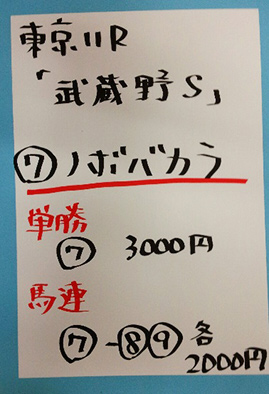 東京11R
「武蔵野S」
⑦ノボバカラ
単勝
⑦ 3000円
馬連
⑦-⑧⑨各
2000円